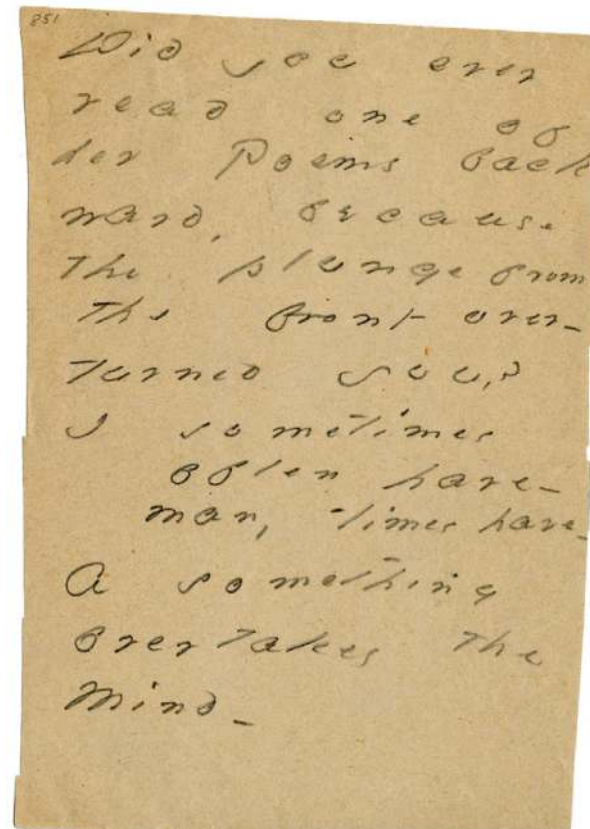 851
Did you ever
read one of
her Poems back
ward, because
the plunge from
the front over-
turned you?
I sometimes
often have-
many times have-
A something
overtakes the
Mind-